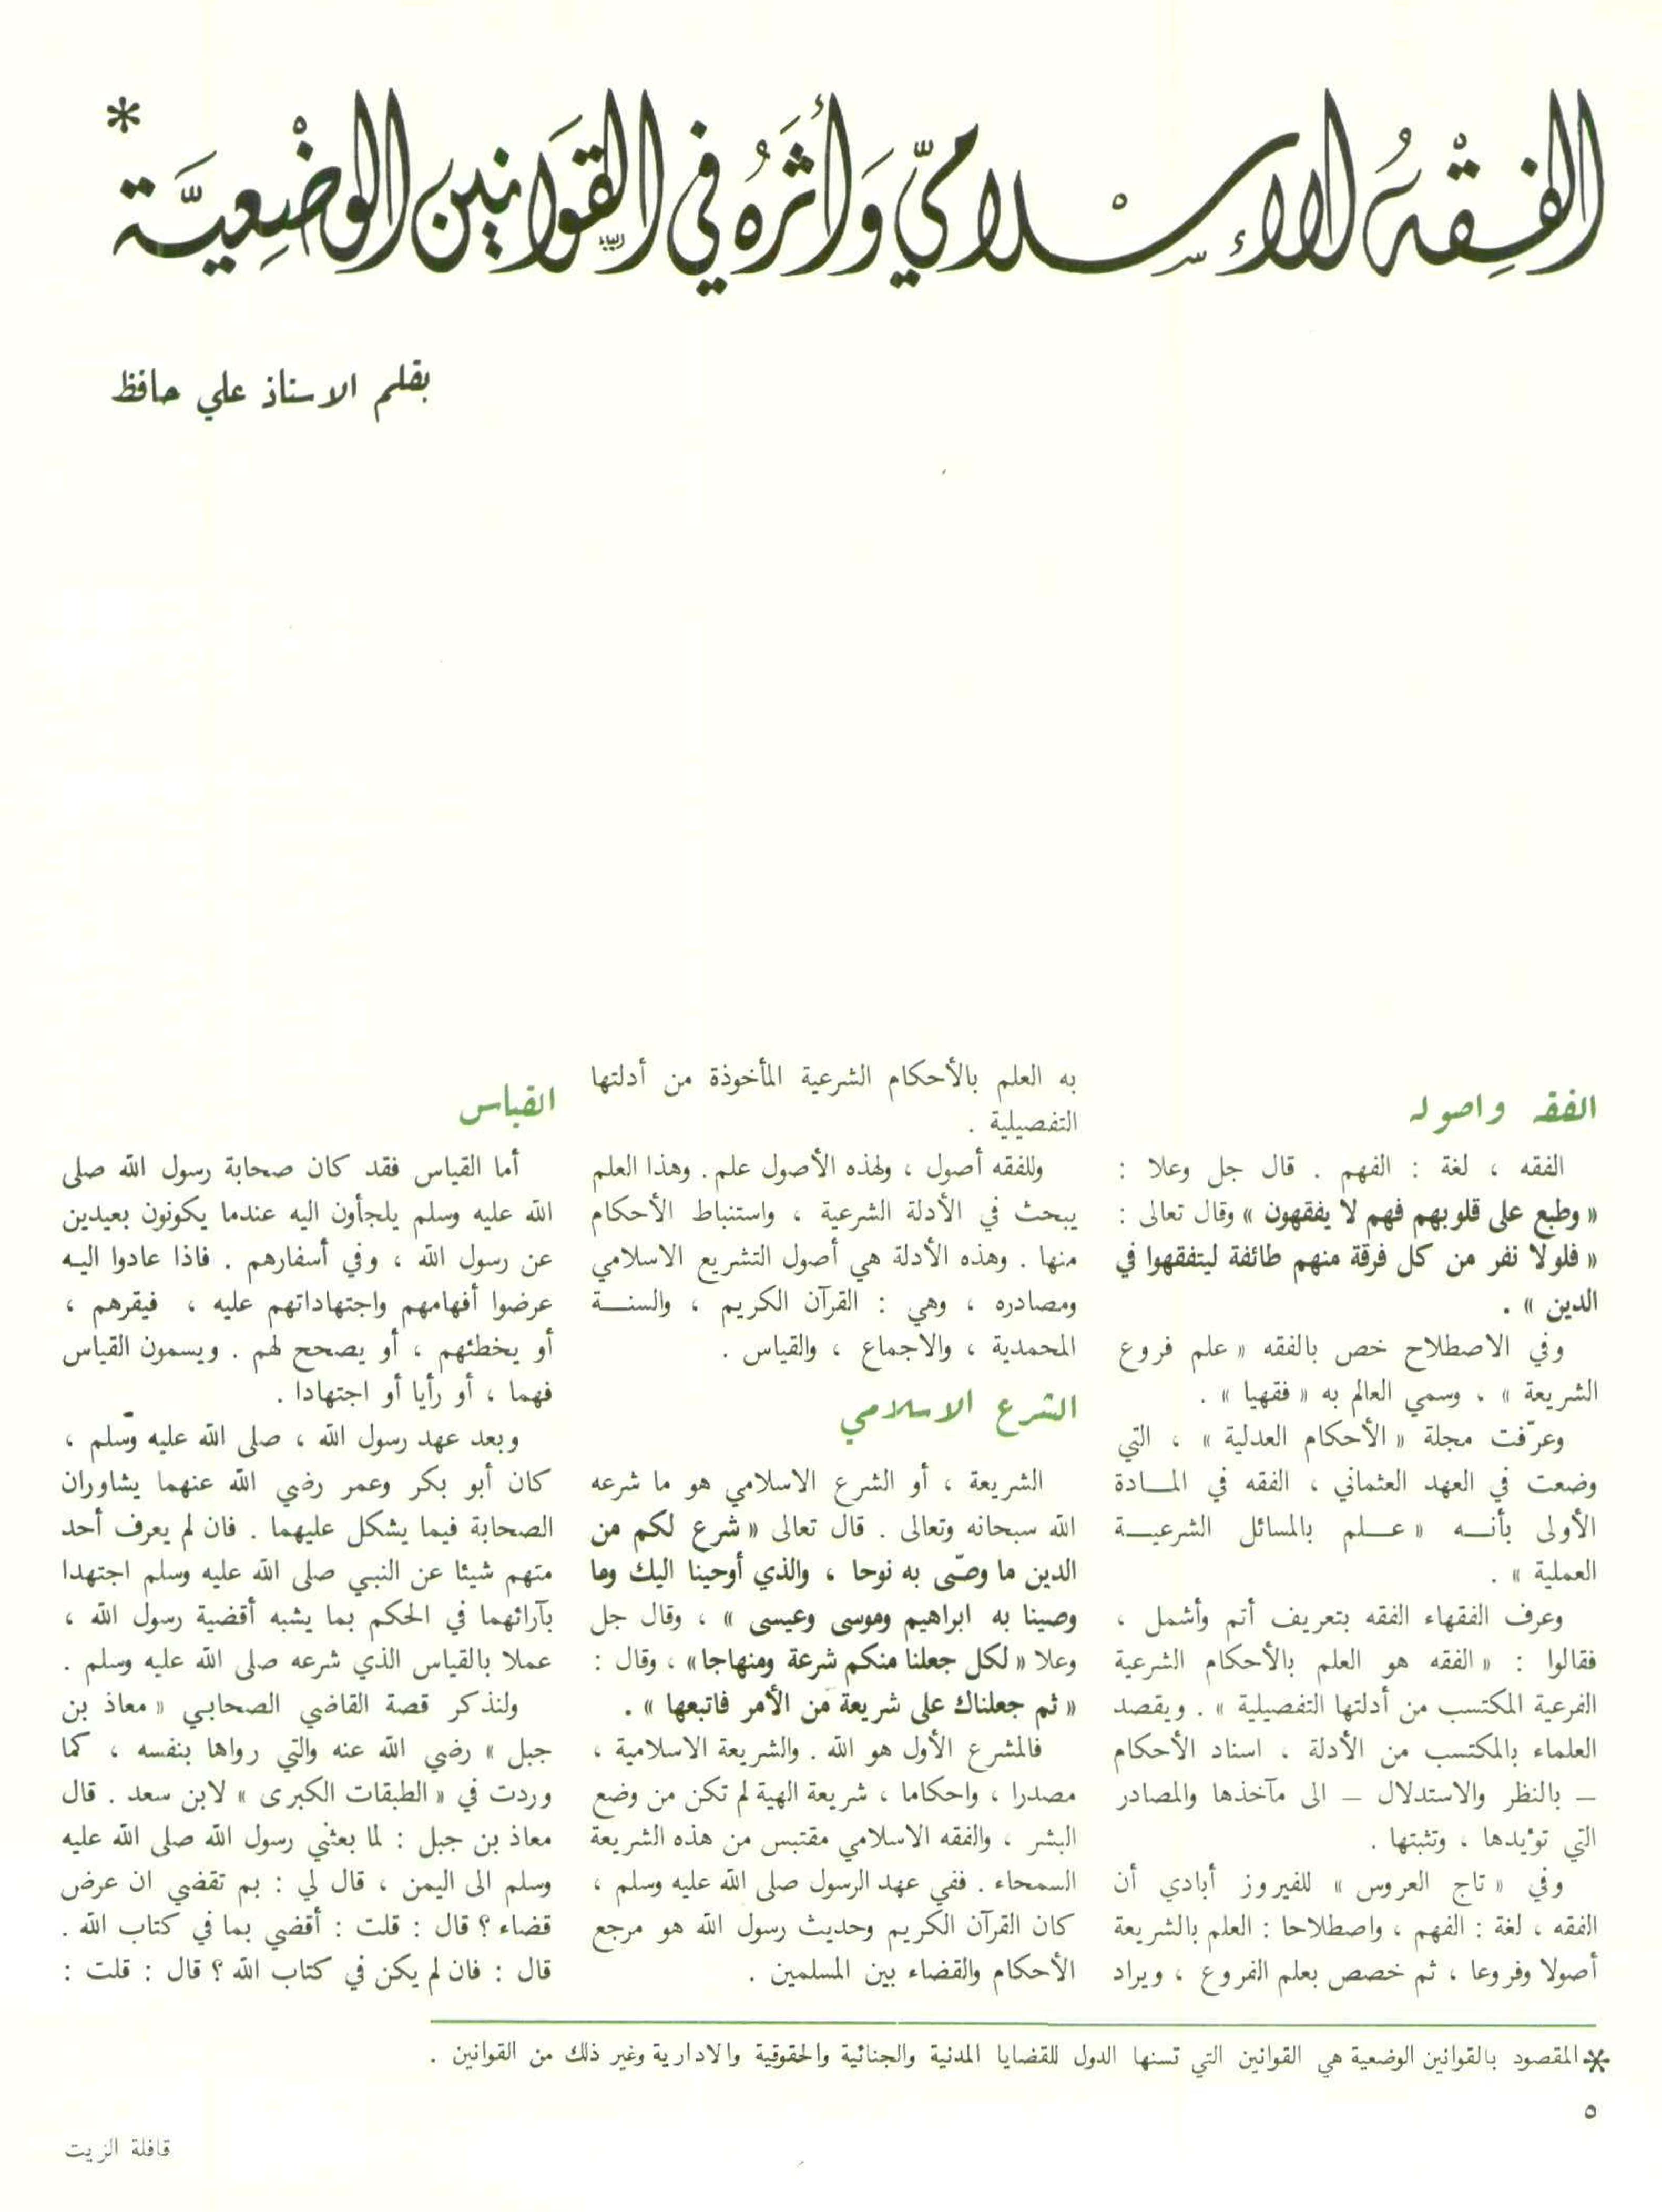 الفِقْهُ الإسْلاميّ وَأثَرُهُ في القَوَانين الوضْعِيَّة *
بقلم الاستاذ علي حافظ
الفقه واصوله
الفقه ، لغة : الفهم . قال جل وعلا :
« وطبع على قلوبهم فهم لا يفقهون » وقال تعالى :
« فلولا نفر من كل فرقة منهم طائفة ليتفقهوا في
الدين » .
وفي الاصطلاح خص بالفقه « علم فروع
الشريعة » ، وسمي العالم به « فقهيا » .
وعرّفت مجلة « الأحكام العدلية » ، التي
وضعت في العهد العثماني ، الفقه في المـادة
الأولى بأنـه « عـلم بالمسائل الشرعيـة
العملية » .
وعرف الفقهاء الفقه بتعريف أتم وأشمل ،
فقالوا : « الفقه هو العلم بالأحكام الشرعية
الفرعية المكتسب من أدلتها التفصيلية » . ويقصد
العلماء بالمكتسب من الأدلة ، اسناد الأحكام
– بالنظر والاستدلال – الى مآخذها والمصادر
التي تؤيدها ، وتثبتها .
وفي « تاج العروس » للفيروز أبادي أن
الفقه ، لغة : الفهم ، واصطلاحا : العلم بالشريعة
أصولا وفروعا ، ثم خصص بعلم الفروع ، ويراد
به العلم بالأحكام الشرعية المأخوذة من أدلتها
التفصيلية .
وللفقه أصول ، ولهذه الأصول علم . وهذا العلم
يبحث في الأدلة الشرعية ، واستنباط الأحكام
منها . وهذه الأدلة هي أصول التشريع الاسلامي
ومصادره ، وهي : القرآن الكريم ، والسنـة
المحمدية ، والاجماع ، والقياس .
الشرع الاسلامي
الشريعة ، أو الشرع الاسلامي هو ما شرعه
الله سبحانه وتعالى . قال تعالى « شرع لكم من
الدين ما وصّى به نوحا ، والذي أوحينا اليك وما
وصينا به ابراهيم وموسى وعيسى » ، وقال جل
وعلا « لكل جعلنا منكم شرعة ومنهاجا » ، وقال :
« ثم جعلناك على شريعة من الأمر فاتبعها » .
فالمشرع الأول هو الله . والشريعة الاسلامية ،
مصدرا ، واحكاما ، شريعة الهية لم تكن من وضع
البشر ، والفقه الاسلامي مقتبس من هذه الشريعة
السمحاء . ففي عهد الرسول صلى الله عليه وسلم ،
كان القرآن الكريم وحديث رسول الله هو مرجع
الأحكام والقضاء بين المسلمين .
القياس
أما القياس فقد كان صحابة رسول الله صلى
الله عليه وسلم يلجأون اليه عندما يكونون بعيدين
عن رسول الله ، وفي أسفارهم . فاذا عادوا اليه
عرضوا أفهامهم واجتهاداتهم عليه ، فيقرهم ،
أو يخطئهم ، أو يصحح لهم . ويسمون القياس
فهما ، أو رأيا أو اجتهادا .
وبعد عهد رسول الله ، صلى الله عليه وسلم ،
كان أبو بكر وعمر رضي الله عنهما يشاوران
الصحابة فيما يشكل عليهما . فان لم يعرف أحد
منهم شيئا عن النبي صلى الله عليه وسلم اجتهدا
بآرائهما في الحكم بما يشبه أقضية رسول الله ،
عملا بالقياس الذي شرعه صلى الله عليه وسلم .
ولنذكر قصة القاضي الصحابي « معاذ بن
جبل » رضي الله عنه والتي رواها بنفسه ، كما
وردت في « الطبقات الكبرى » لابن سعد . قال
معاذ بن جبل : لما بعثني رسول الله صلى الله عليه
وسلم الى اليمن ، قال لي : بم تقضي ان عرض
قضاء ؟ قال : قلت : أقضي بما في كتاب الله .
قال : فان لم يكن في كتاب الله ؟ قال : قلت :
* المقصود بالقوانين الوضعية هي القوانين التي تسنها الدول للقضايا المدنية والجنائية والحقوقية والادارية وغير ذلك من القوانين .
٥
قافلة الزيت